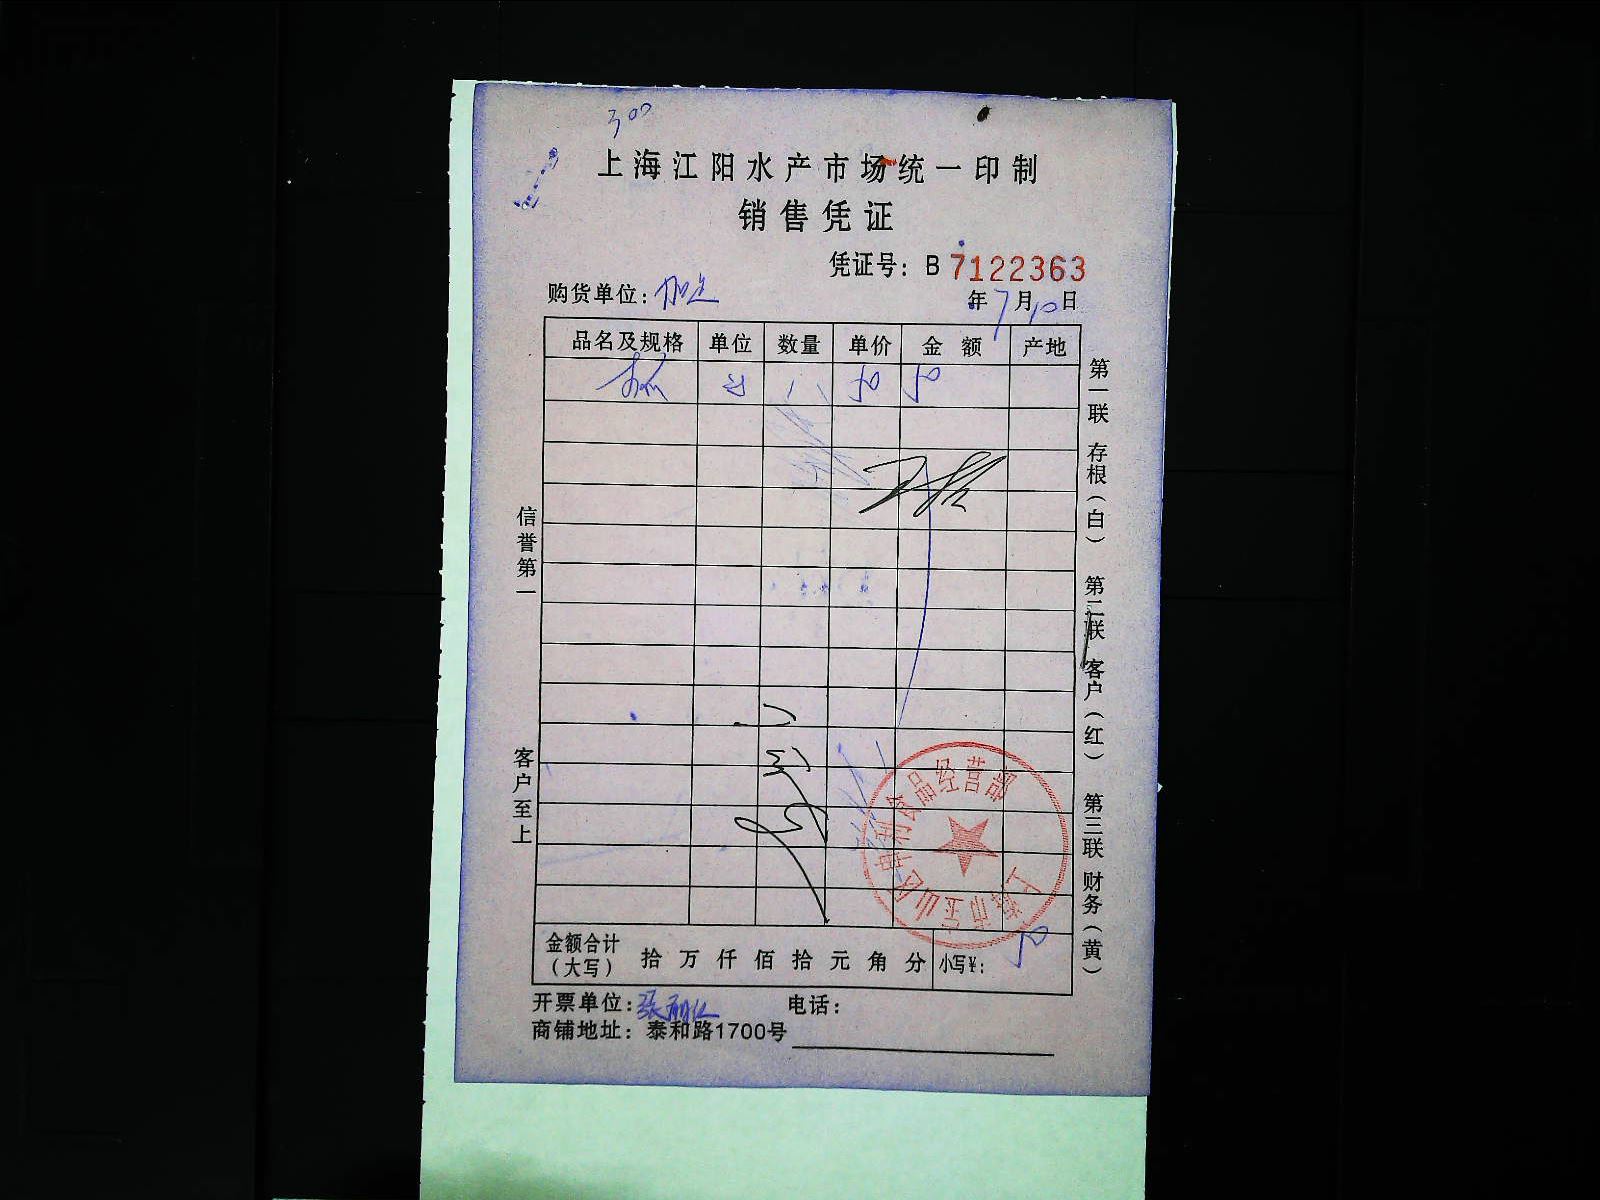 300
上海江阳水产市场统一印制
销售凭证
凭证号：B 7122363
购货单位：
年7月10日
品名及规格 单位 数量 单价 金额 产地
50 50
信誉第一
客户至上
第一联 存根（白） 第二联 客户（红） 第三联 财务（黄）
经营部
上海市宝山区
金额合计（大写） 拾 万 仟 佰 拾 元 角 分 小写¥：50
开票单位：张
电话：
商铺地址：泰和路1700号